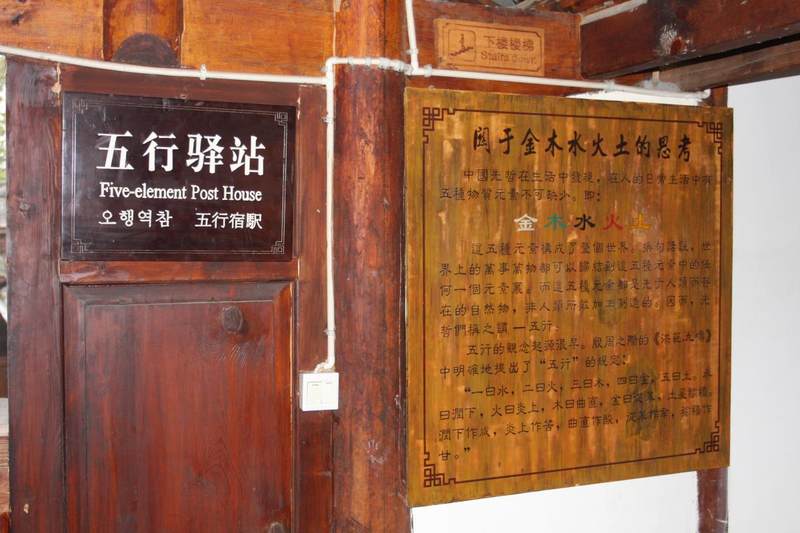 五行驿站
Five-element Post House
오행역참 五行宿駅
下楼楼梯
Stairs down
関于金木水火土的思考
中國先哲在生活中發現，在人的日常生活中有
五種物質元素不可缺少。即：
金木水火土
這五種元素構成了整個世界。換句話說，世
界上的萬事萬物都可以歸結到這五種元素中的任
何一個元素裏。而這五種元素都是先于人類而存
在的自然物，非人類所能加工制造的。因而，先
哲們稱之謂—五行。
五行的觀念起源很早。殷周之際的《洪範九疇》
中明確地提出了“五行”的規定：
“一曰水，二曰火，三曰木，四曰金，五曰土。水
曰潤下，火曰炎上，木曰曲直，金曰從革，土爰稼穡。
潤下作咸，炎上作苦，曲直作酸，從革作辛，稼穡作
甘。”